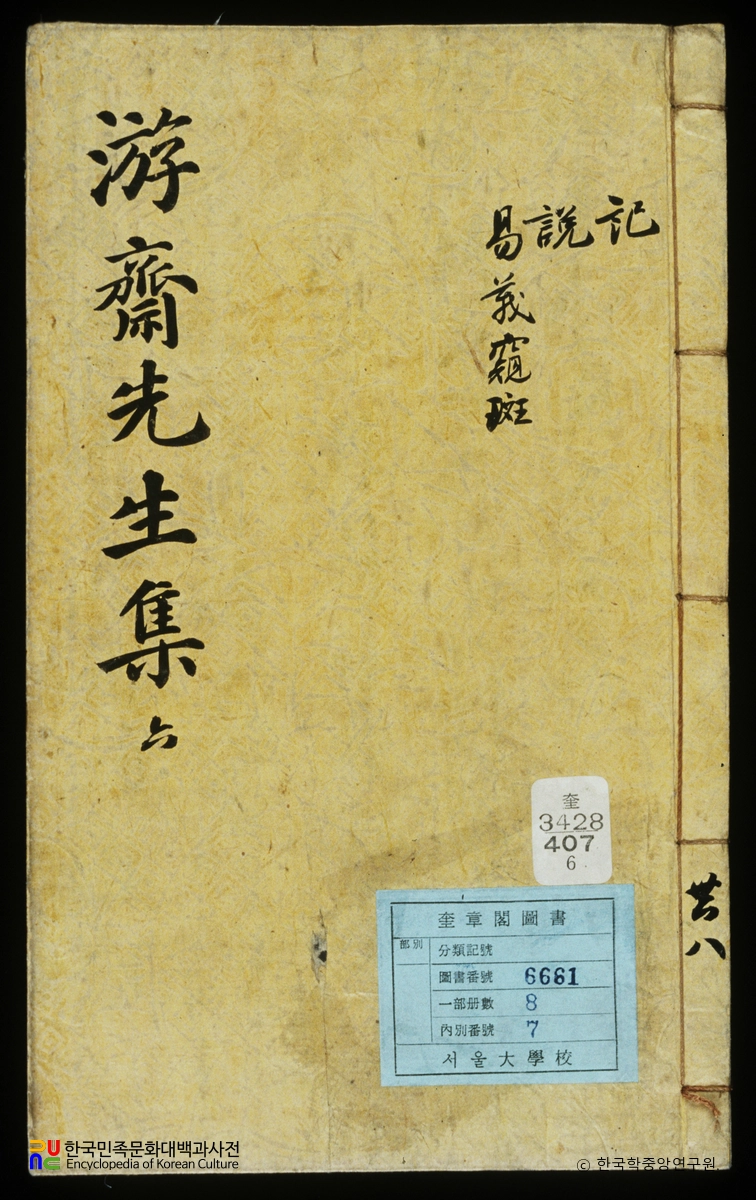 記
說
易義窺斑
游齋先生集 六
共八
奎
3428
407
6
奎章閣圖書
部別
分類記號
圖書番號 6661
一部册數 8
內別番號 7
서울大學校
한국민족문화대백과사전
Encyclopedia of Korean Culture
© 한국학중앙연구원